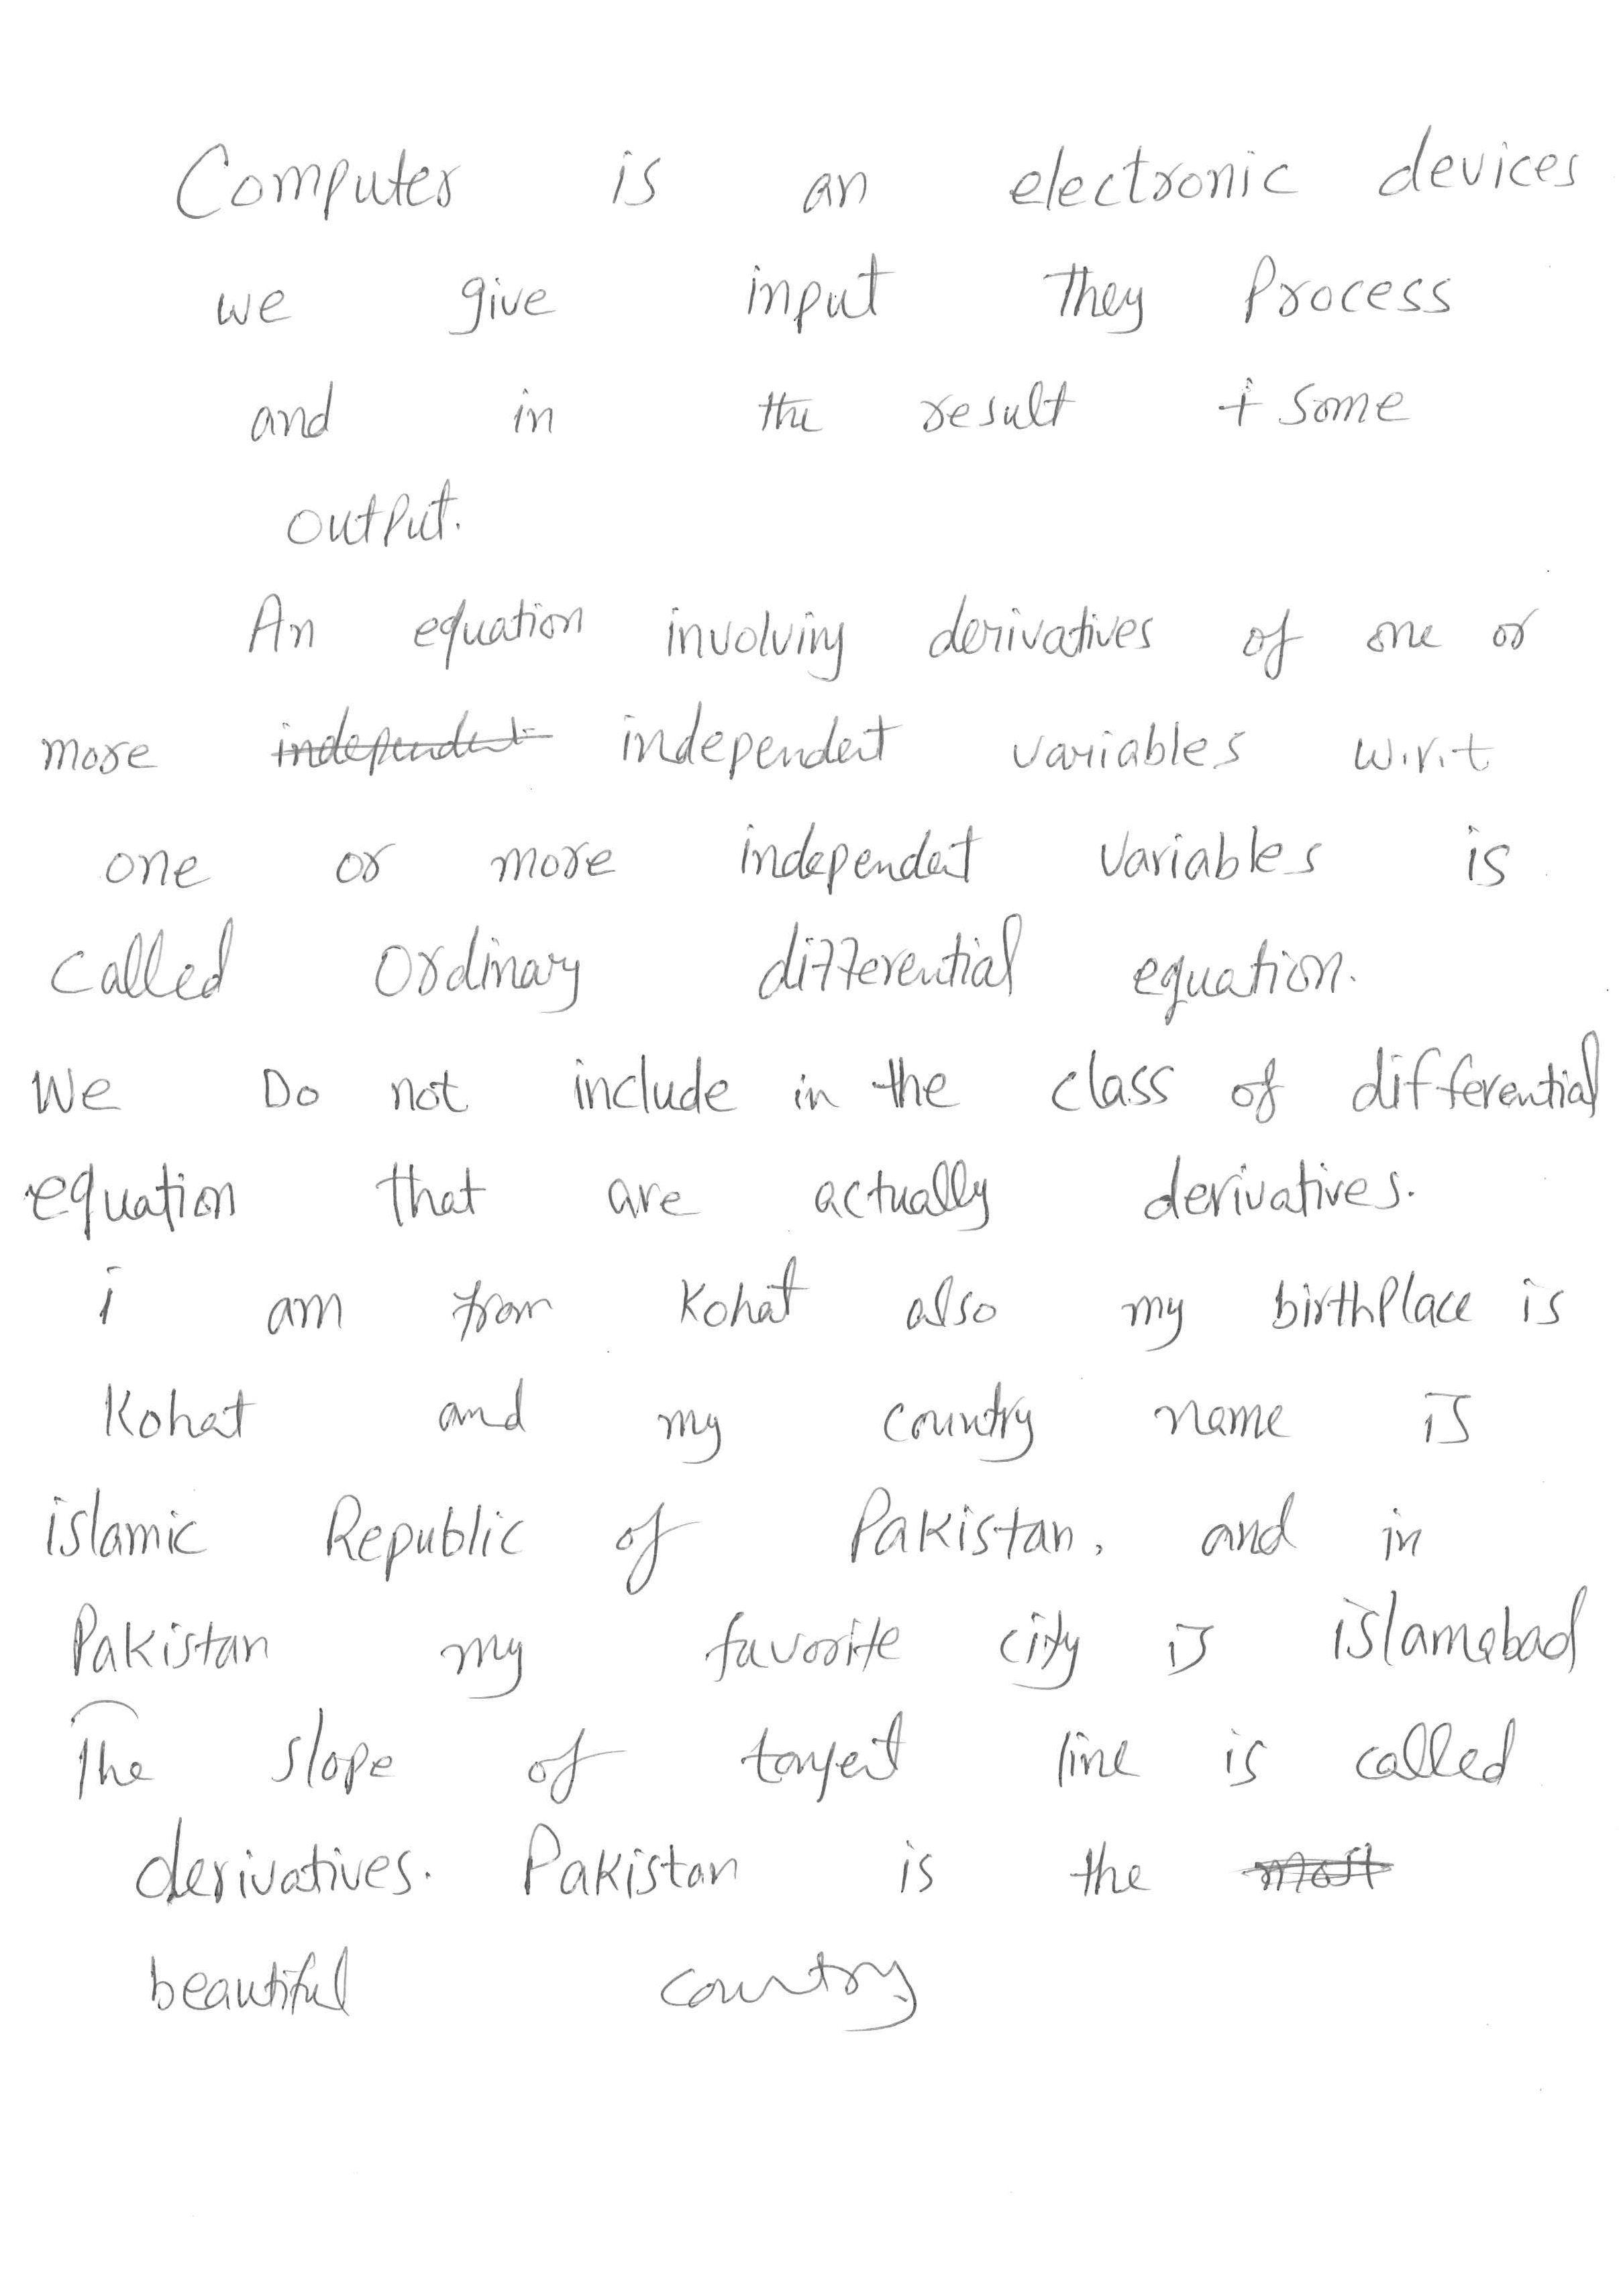 Computer is an electronic devices
we give input They Process
and in the result + some
output.
An equation involving derivatives of one or
more ~~independent~~ independent variables w.r.t
one or more independent variables is
called Ordinary differential equation.
We Do not include in the class of differential
equation that are actually derivatives.
i am from Kohat also my birthplace is
Kohat and my country name is
islamic Republic of Pakistan, and in
Pakistan my favorite city is islamabad
The slope of tangent line is called
derivatives. Pakistan is the ~~most~~
beautiful country